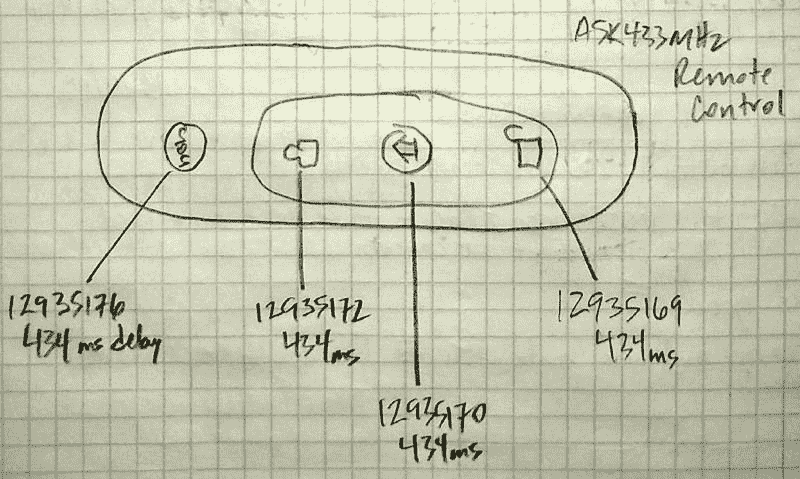 ASK433MHz
Remote
Control
12935176
434 ms delay
12935172
434 ms
12935169
434 ms
12935170
434 ms